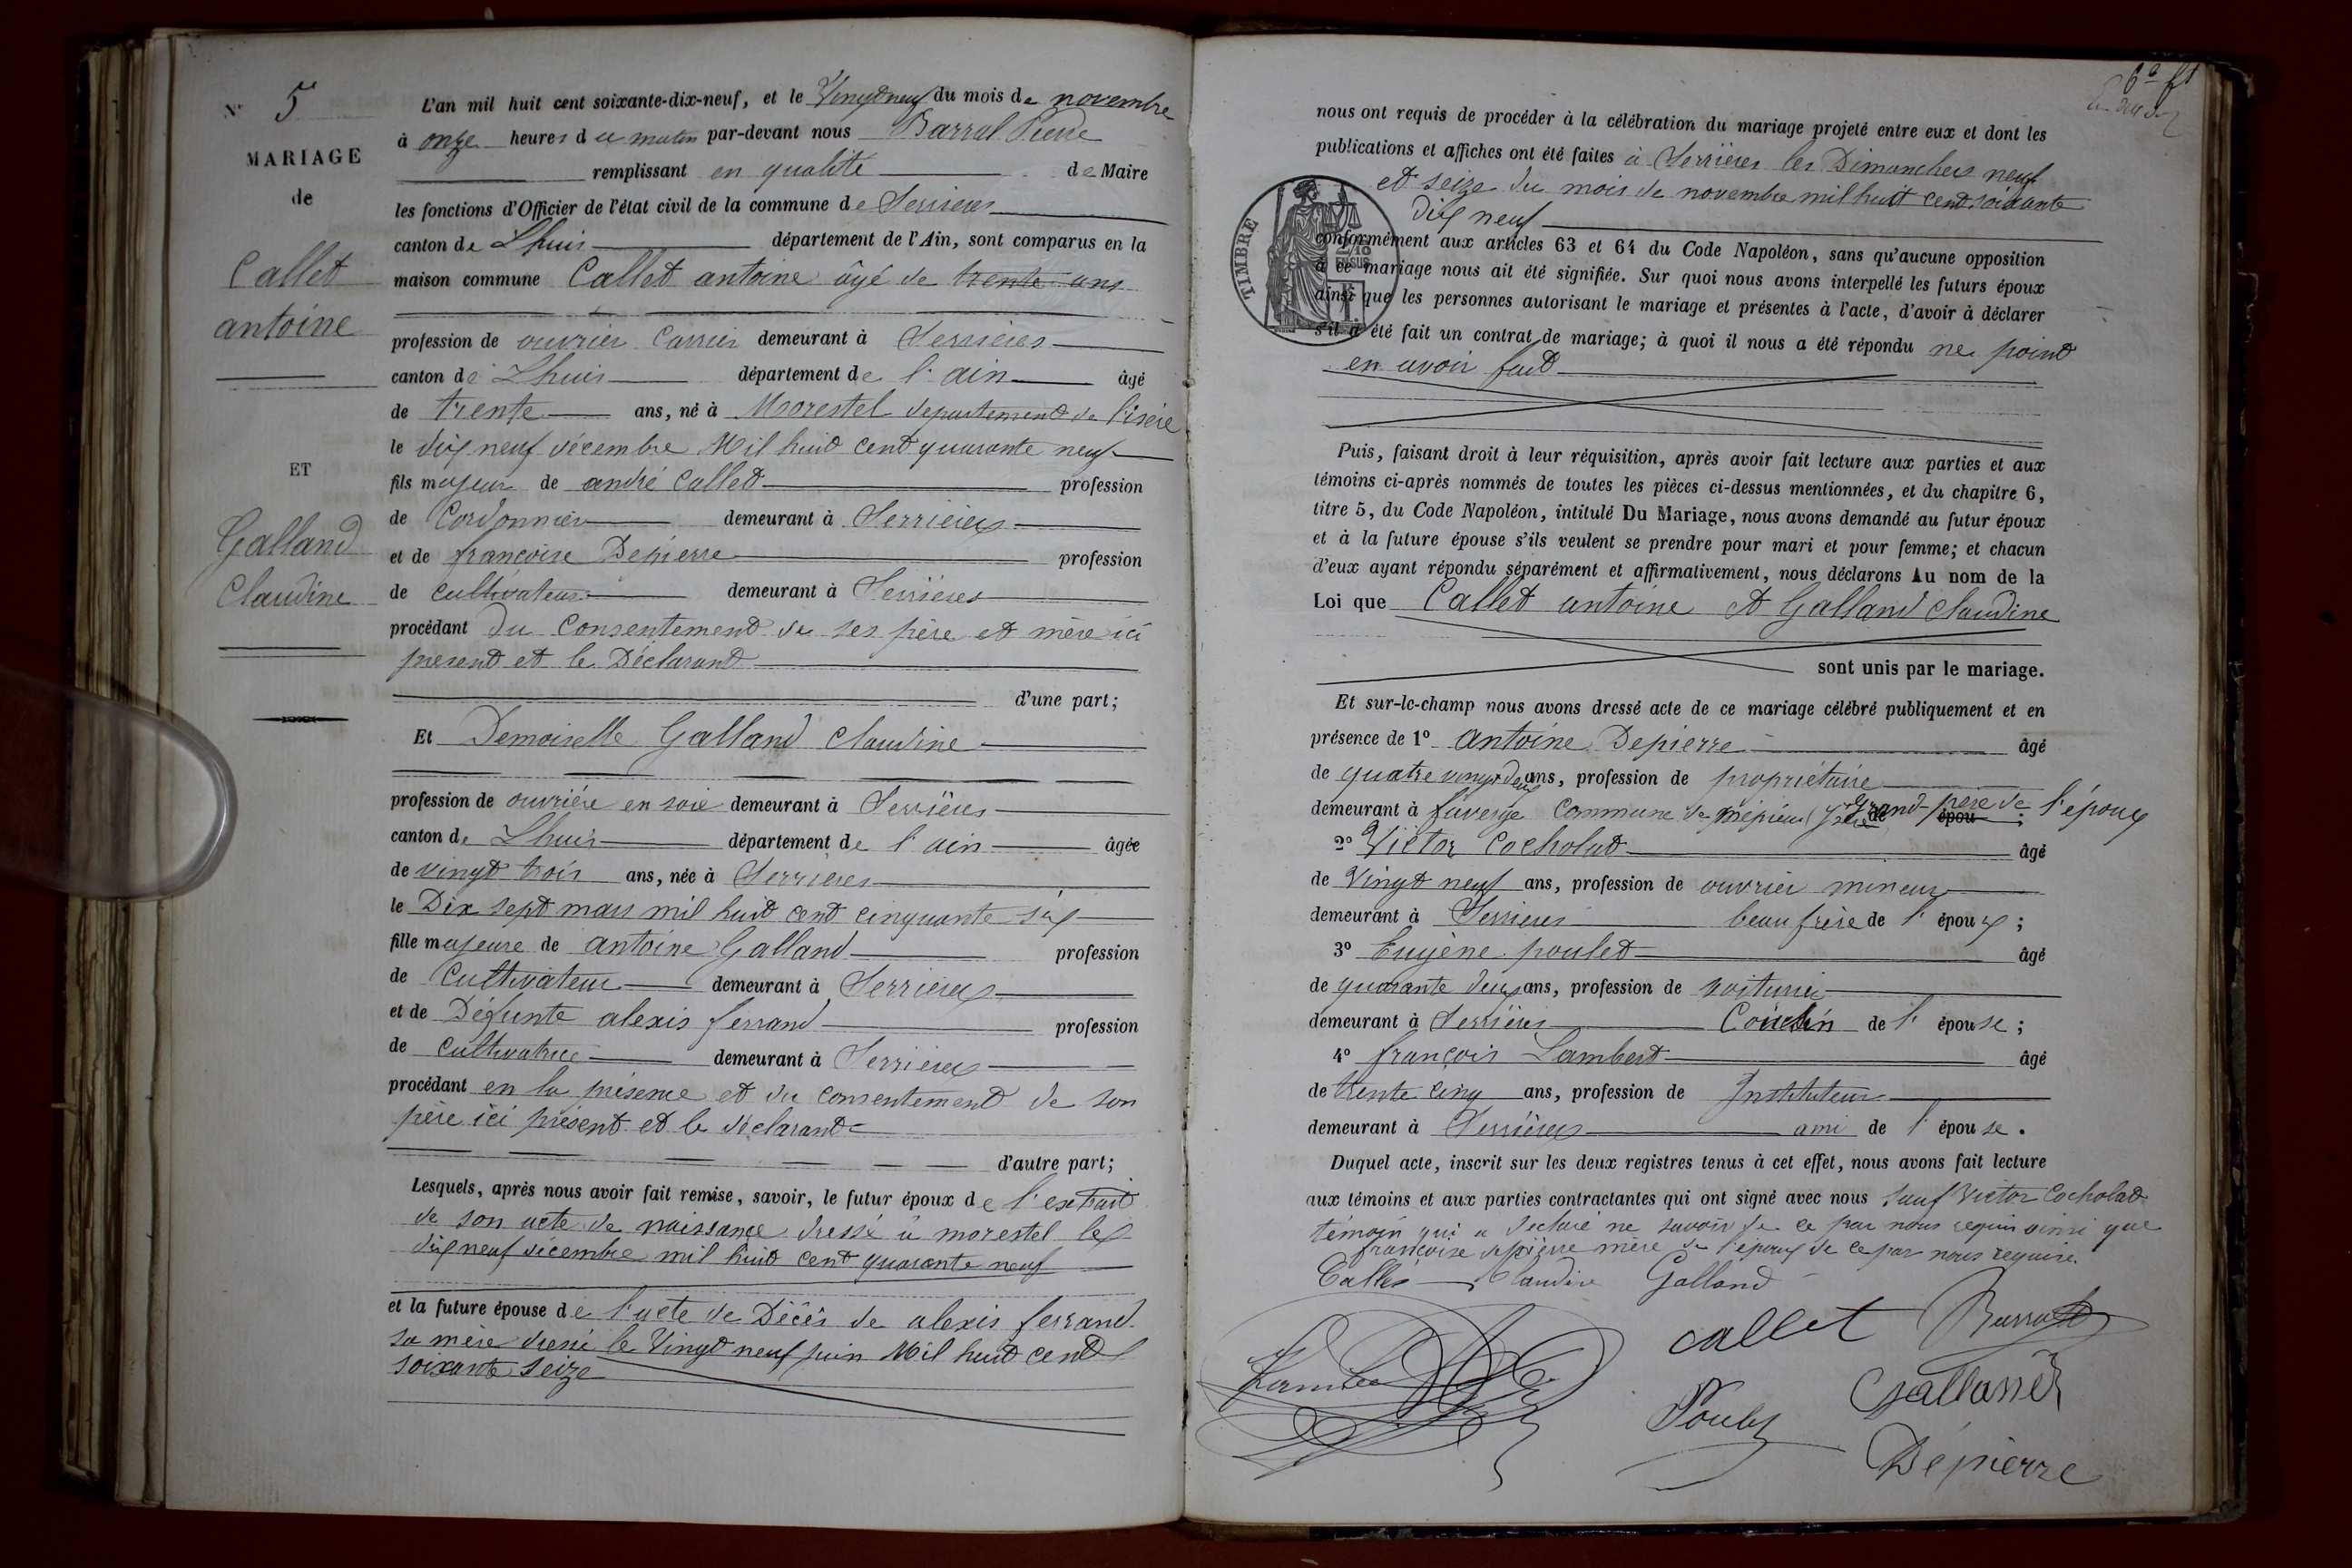 N° 5
MARIAGE
de
Callet
antoine
ET
Galland
Claudine
L'an mil huit cent soixante-dix-neuf, et le Vingt neuf du mois de novembre
à onze heures du matin par-devant nous Barral Pierre
remplissant en qualité de Maire
les fonctions d'Officier de l'état civil de la commune de Serrieres
canton de Lhuis département de l'Ain, sont comparus en la
maison commune Callet antoine âgé de trente ans
profession de ouvrier Carrier demeurant à Serrieres
canton de Lhuis département de l'ain âgé
de trente ans, né à Morestel departement de l'isère
le dix neuf décembre Mil huit cent quarante neuf
fils majeur de andré Callet profession
de Cordonnier demeurant à Serrieres
et de françoise Depierre profession
de cultivateur demeurant à Serrières
procédant du consentement de ses père et mère ici
present et le Déclarant
d'une part;
Et Demoiselle Galland Claudine
profession de ouvrière en soie demeurant à Serrières
canton de Lhuis département de l'ain âgée
de vingt trois ans, née à Serrières
le Dix sept mars mil huit cent cinquante six
fille majeure de antoine Galland profession
de Cultivateur demeurant à Serrieres
et de Défunte alexis ferrand profession
de cultivatrice demeurant à Serrieres
procédant en la présence et du consentement de son
père ici présent et le déclarant
d'autre part;
Lesquels, après nous avoir fait remise, savoir, le futur époux de l'extrait
de son acte de naissance dressé à morestel le
dix neuf décembre mil huit cent quarante neuf
et la future épouse de l'acte de Décès de alexis ferrand
sa mère dressé le Vingt neuf juin Mil huit cent
soixante seize
nous ont requis de procéder à la célébration du mariage projeté entre eux et dont les
publications et affiches ont été faites à Serrières les Dimanches neuf
et seize du mois de novembre mil huit cent soixante
dix neuf
TIMBRE
2/10 EN SUS
conformément aux articles 63 et 64 du Code Napoléon, sans qu'aucune opposition
à ce mariage nous ait été signifiée. Sur quoi nous avons interpellé les futurs époux
ainsi que les personnes autorisant le mariage et présentes à l'acte, d'avoir à déclarer
s'il a été fait un contrat de mariage; à quoi il nous a été répondu ne point
en avoir fait
Puis, faisant droit à leur réquisition, après avoir fait lecture aux parties et aux
témoins ci-après nommés de toutes les pièces ci-dessus mentionnées, et du chapitre 6,
titre 5, du Code Napoléon, intitulé Du Mariage, nous avons demandé au futur époux
et à la future épouse s'ils veulent se prendre pour mari et pour femme; et chacun
d'eux ayant répondu séparément et affirmativement, nous déclarons Au nom de la
Loi que Callet antoine et Galland Claudine
sont unis par le mariage.
Et sur-le-champ nous avons dressé acte de ce mariage célébré publiquement et en
présence de 1° Antoine Depierre âgé
de quatre vingt deux ans, profession de propriétaire
demeurant à faverge Commune de mépieu Grand-père de l'époux
2° Victor Cocholat âgé
de Vingt neuf ans, profession de ouvrier mineur
demeurant à Serrieres beau frère de l'époux;
3° Eugène poulet âgé
de quarante deux ans, profession de voiturier
demeurant à Serrières Cousin de l'épouse;
4° françois Lambert âgé
de trente cinq ans, profession de Instituteur
demeurant à Serrières ami de l'épouse.
Duquel acte, inscrit sur les deux registres tenus à cet effet, nous avons fait lecture
aux témoins et aux parties contractantes qui ont signé avec nous sauf Victor Cocholat
témoin qui a declaré ne savoir de ce par nous requis ainsi que
françoise depierre mère de l'époux de ce par nous requise.
Callet Claudine Galland
callet Barral
Lambert
Poulet Galland
Dépierre